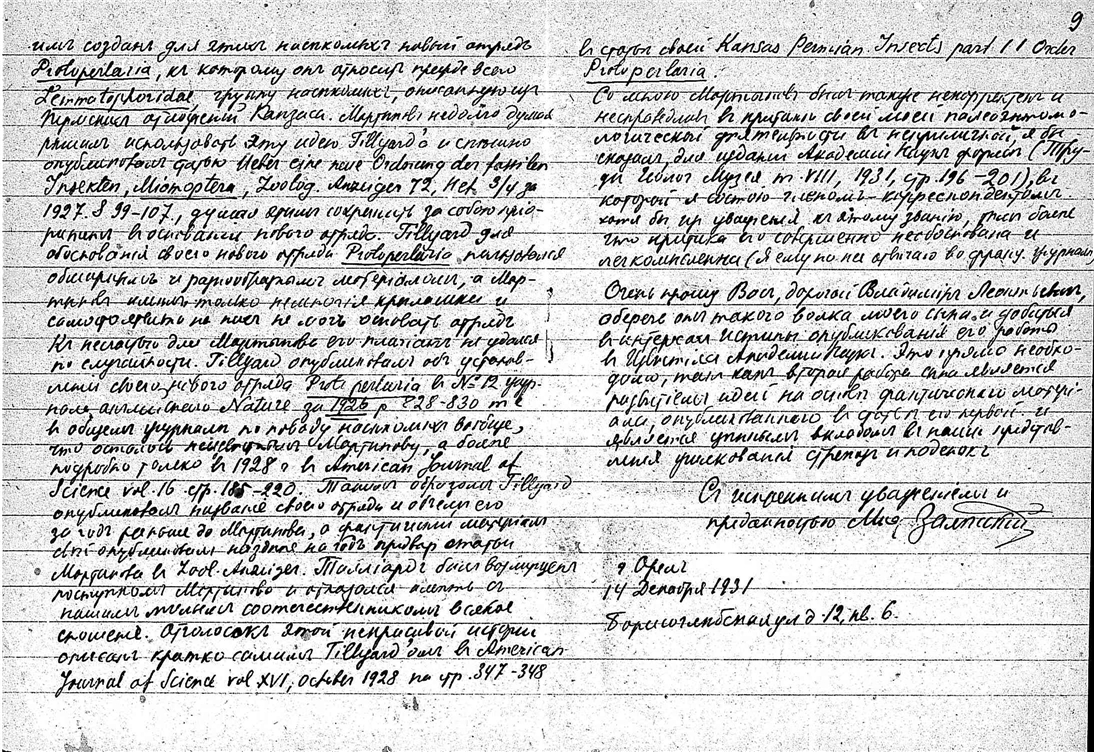 9
имъ созданъ для этихъ насѣкомыхъ новый отрядъ
Protoperlaria, къ которому онъ относитъ прежде всего
Lemmatophoridae, группу насѣкомыхъ, описанную изъ
Пермскихъ отложеній Канзаса. Мартыновъ недолго думая
рѣшилъ использовать эту идею Tillyard'a и спѣшно
опубликовалъ статью Ueber eine neue Ordnung der fossilen
Insekten, Miomoptera, Zoolog. Anzeiger 72, Heft 3/4 за
1927. S 99-107, думая этимъ сохранить за собою прiо-
ритетъ въ основаніи новаго отряда. Tillyard для
обоснованія своего новаго отряда Protoperlaria пользовался
обширнымъ и разнообразнымъ матеріаломъ, а Мар-
тыновъ имѣлъ только немногія крылышки и
самостоятельно на нихъ не могъ основать отрядъ
Къ несчастью для Мартынова его плагіатъ не удался
по случайности. Tillyard опубликовалъ объ установ-
леніи своего новаго отряда Protoperlaria въ № 12 жур-
нала англійскаго Nature за 1926 р 828-830 т е
въ общемъ журналѣ по поводу насѣкомыхъ вообще,
что осталось неизвѣстнымъ Мартынову, а болѣе
подробно только въ 1928 г въ American Journal of
Science vol. 16 стр. 185-220. Такимъ образомъ Tillyard
опубликовалъ названіе своего отряда и объемъ его
за годъ раньше до Мартынова, а фактическій матеріалъ
опубликовалъ позднѣе на годъ статьи
Мартынова въ Zool. Anzeiger. Тилліардъ былъ возмущенъ
поступкомъ Мартынова и отказался имѣть съ
нашимъ соотечественникомъ всякое
сношеніе. Отголосокъ этой некрасивой исторіи
описанъ кратко самимъ Tillyard'омъ въ American
Journal of Science vol XVI, October 1928 на стр. 347-348
въ статьѣ своей Kansas Permian Insects part 11 Order
Protoperlaria.
Со мною Мартыновъ былъ также некорректенъ и
несправедливъ въ критикѣ своей моей палеоэнтомо-
логической дѣятельности въ неприличной, я бы
сказалъ, для изданій Академіи Наукъ формѣ (Тру-
ды Геолог Музея т. VIII, 1931, стр. 196-201), въ
которой я состою членомъ-корреспондентомъ
хотя бы изъ уваженія къ этому званію, тѣмъ болѣе
что критика его совершенно необоснована и
легкомысленна (Я ему на нее отвѣчаю во франц. журналѣ)
Очень прошу Васъ, дорогой Владиміръ Леонтьевичъ,
оберечь отъ такого волка моего сына и добиться
въ интересахъ истины опубликованія его работы
въ Извѣстіяхъ Академіи Наукъ. Это прямо необхо-
димо, такъ какъ вторая работа сына является
развитіемъ идей на основѣ фактическаго матері-
ала, опубликованнаго въ его первой и
является цѣннымъ вкладомъ въ наши представ-
ленія жилкованія стрекозъ и поденокъ
Съ искреннимъ уваженіемъ и
преданностью Мих. Залѣсскій
г Орелъ
14 Декабря 1931
Борисоглѣбская ул д. 12, кв. 6.